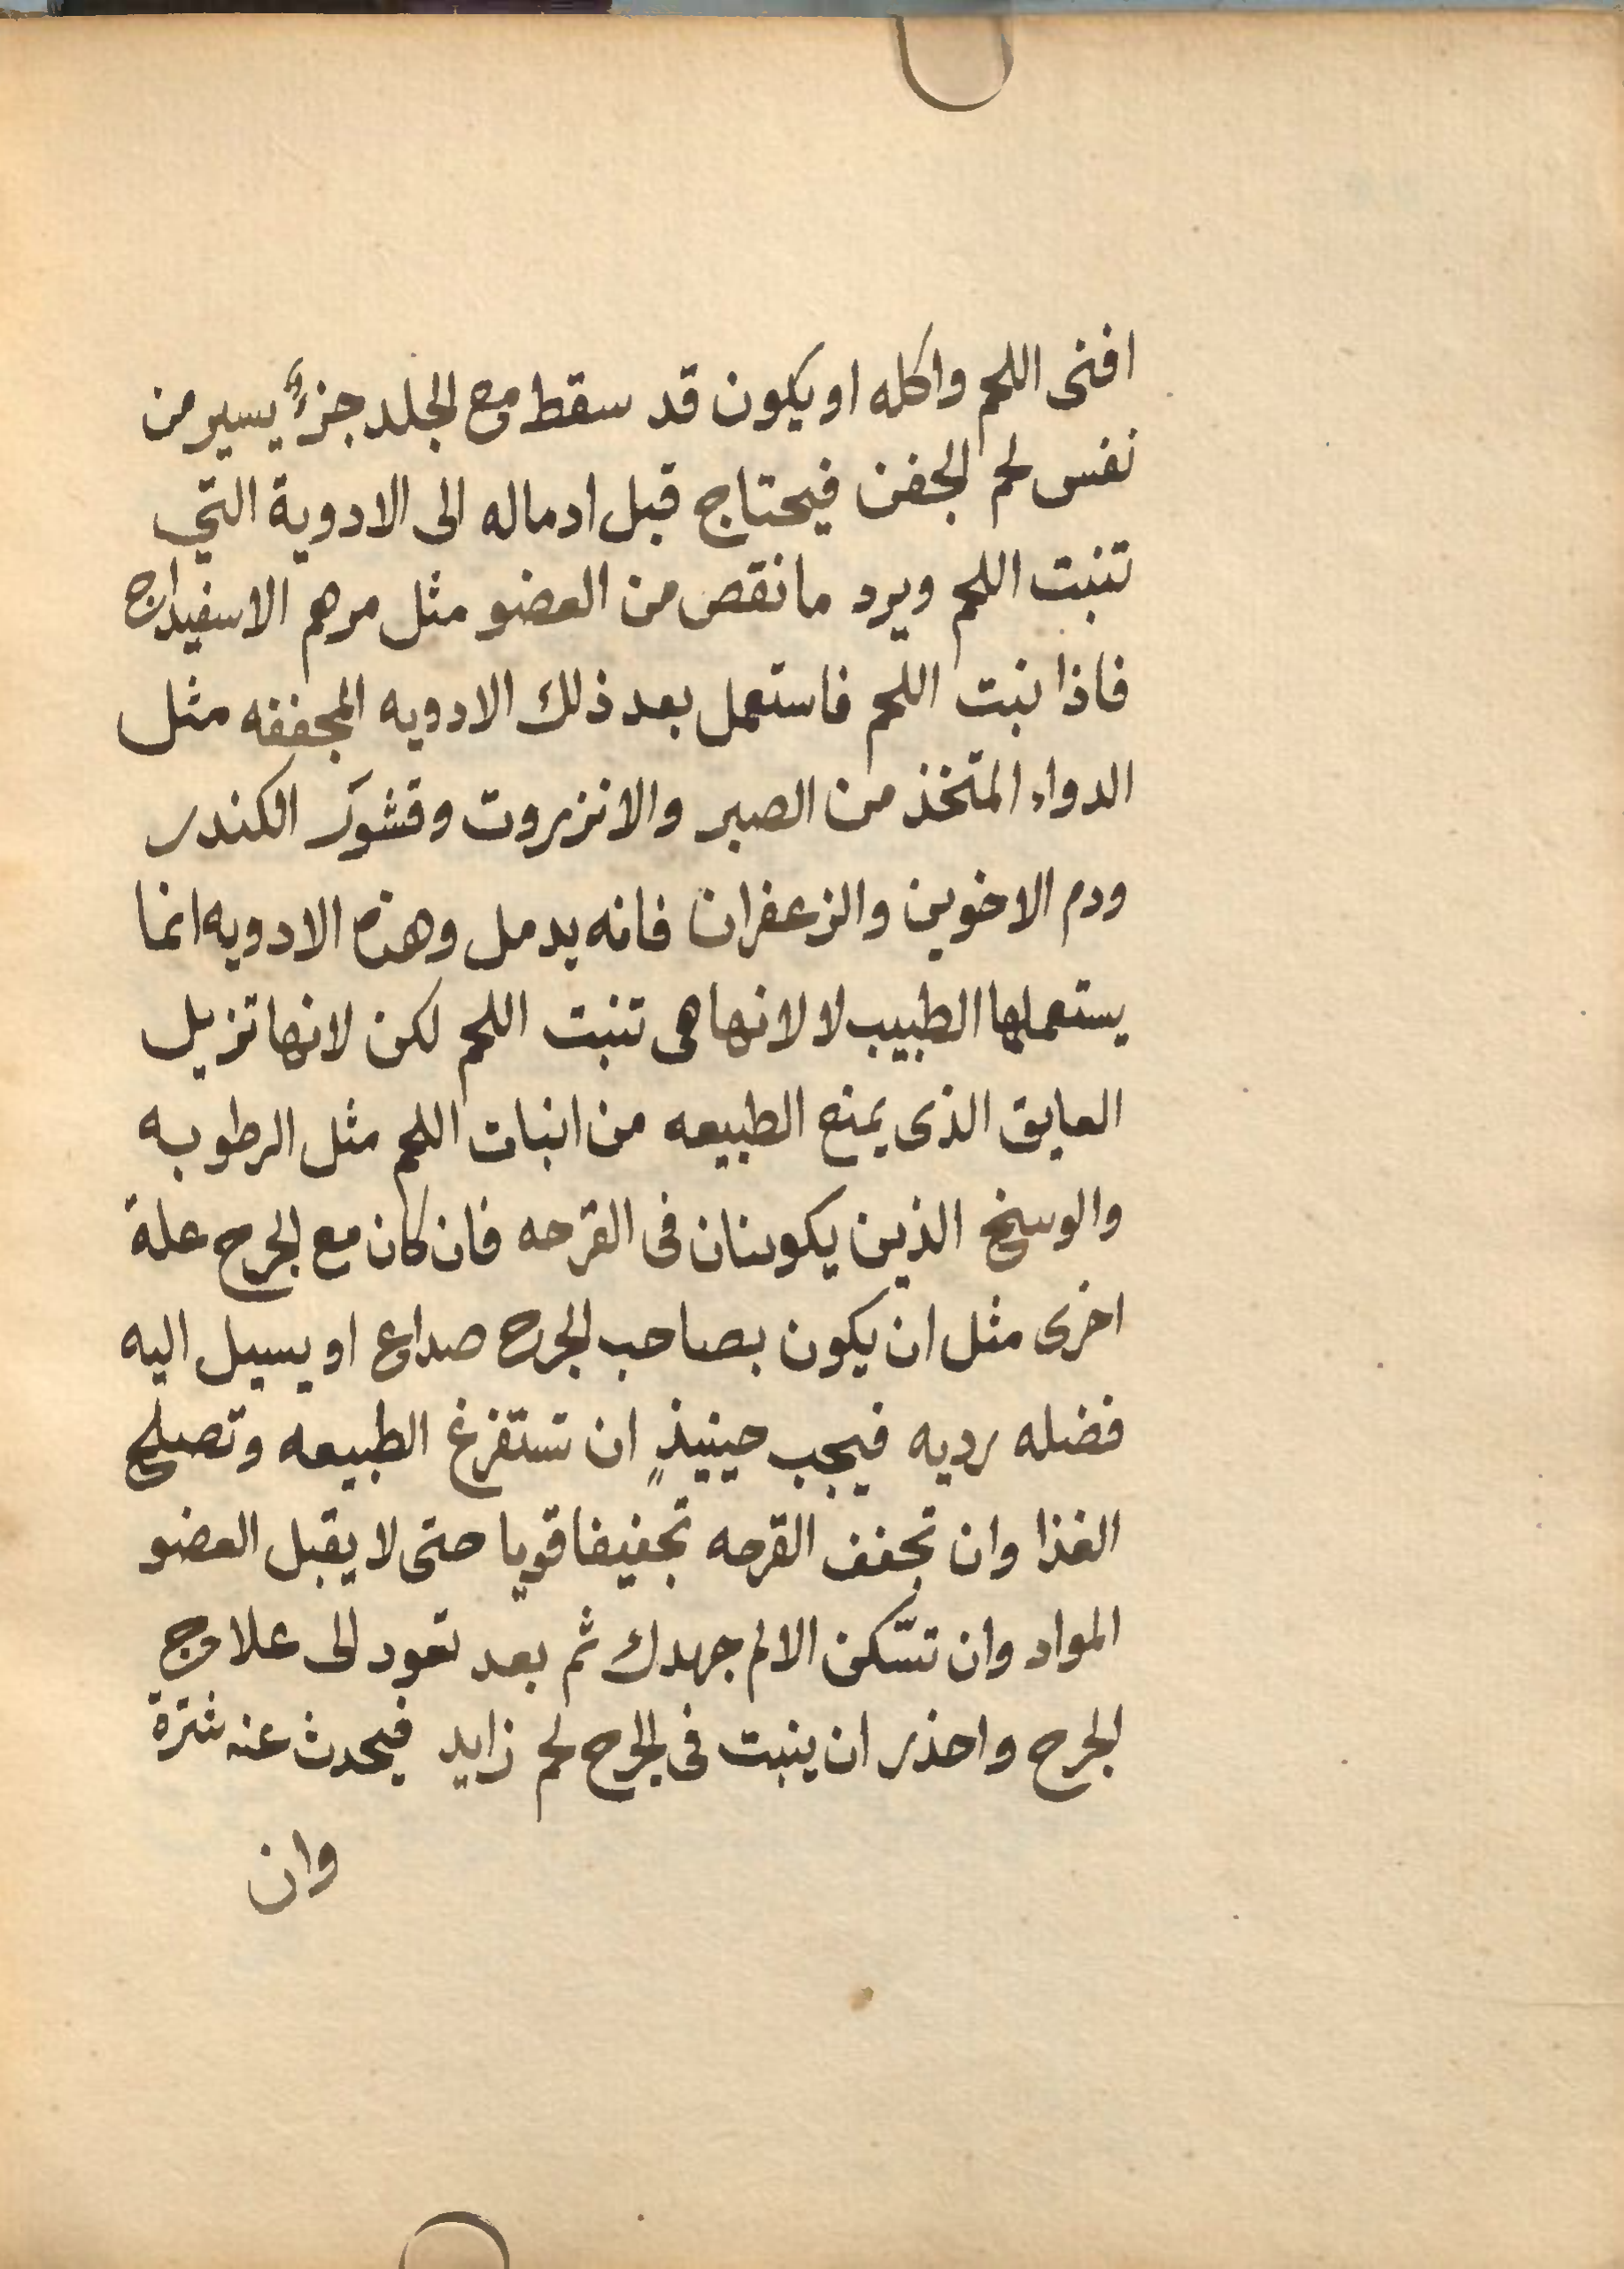 افنى اللحم واكله او يكون قد سقط مع الجلد جزءٌ يسير من
نفس لحم الجفن فيحتاج قبل ادماله الى الادوية التي
تنبت اللحم ويرد ما نقص من العضو مثل مرهم الاسفيداج
فاذا نبت اللحم فاستعمل بعد ذلك الادويه المجففه مثل
الدواء المتخذ من الصبر والانزروت وقشور الكندر
ودم الاخوين والزعفران فانه يدمل وهذه الادويه انما
يستعملها الطبيب لا لانها هى تنبت اللحم لكن لانها تزيل
العايق الذى يمنع الطبيعه من انبات اللحم مثل الرطوبه
والوسخ الذين يكونان فى القرحه فان كان مع الجرح علة
اخرى مثل ان يكون بصاحب الجرح صداع او يسيل اليه
فضله رديه فيجب حينيذٍ ان تستفرغ الطبيعه وتصلح
الغذا وان تجفف القرحه تجفيفا قويا حتى لا يقبل العضو
المواد وان تسّكن الالم جهدك ثم بعد تعود الى علاج
الجرح واحذر ان ينبت فى الجرح لحم زايد فيحدث عنه شترة
وان